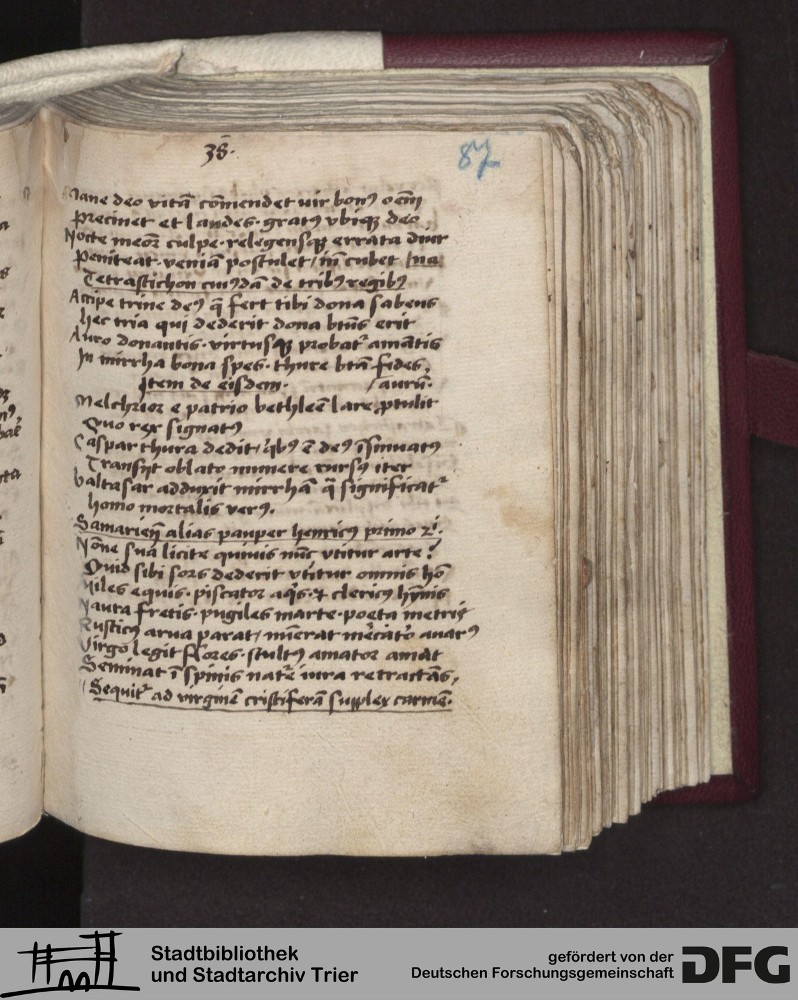 38.
87
Mane deo vitā cōmendet vir bonꝰ oēm
Precinet et laudes · gratꝰ vbiqꝫ deo
Nocte meoꝝ culpe · relegensqꝫ errata diur
Peniteat · veniā postulet / in cubet
Tetrastichon cuiꝰdā de tribꝰ regibꝰ
Accipe trine deꝰ q̄ fert tibi dona sabeus
hec tria qui dederit dona btūs erit
Auro donantis · virtusqꝫ probatᷣ amātis
In mirrha bona spes · thure btā fides,
Item de eisdem · / aurū ·
Melchior e patrio bethleē lare ꝓtulit
Quo rex signatꝰ
Caspar thura dedit / qͥbꝰ ē deꝰ īsinuatꝰ
Transijt oblato munere rursꝰ iter
baltasar adduxit mirrhā q̄ significatᷣ
homo mortalis verꝰ.
alias pauper henricꝰ primo
Nōne sua licite quiuis nūc vtitur arte?
Quid sibi sors dederit vtitur omnis hō
Miles equis · piscator aqͥs · & clericꝰ hȳnis
Nauta fretis · pugiles marte · poeta metris
Rusticꝰ arua parat / nūerat mēcator auarꝰ
Virgo legit flores · stultꝰ amator amat
Seminat ī spinis natᷣe iura retractās,
Sequitᷣ ad virginē cristiferā supplex carmē ·
Stadtbibliothek
und Stadtarchiv Trier
gefördert von der
Deutschen Forschungsgemeinschaft
DFG